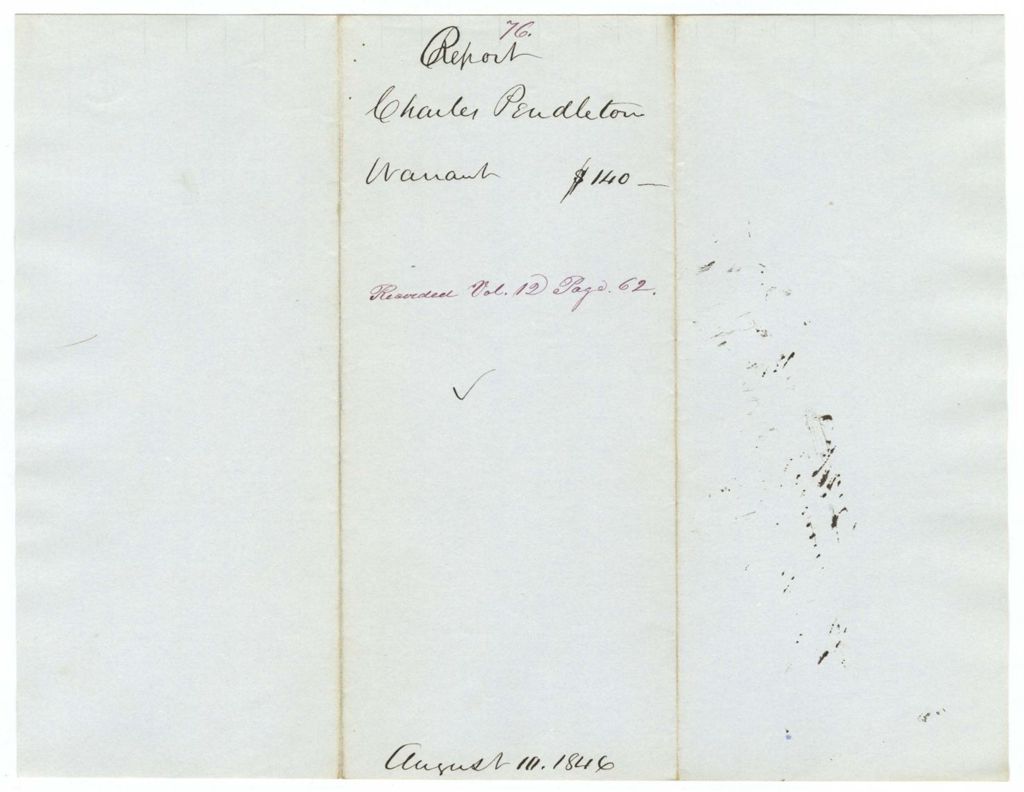 76.
Report
Charles Pendleton
Warrant $140 —
Recorded Vol. 12 Page. 62.
August 10. 1846